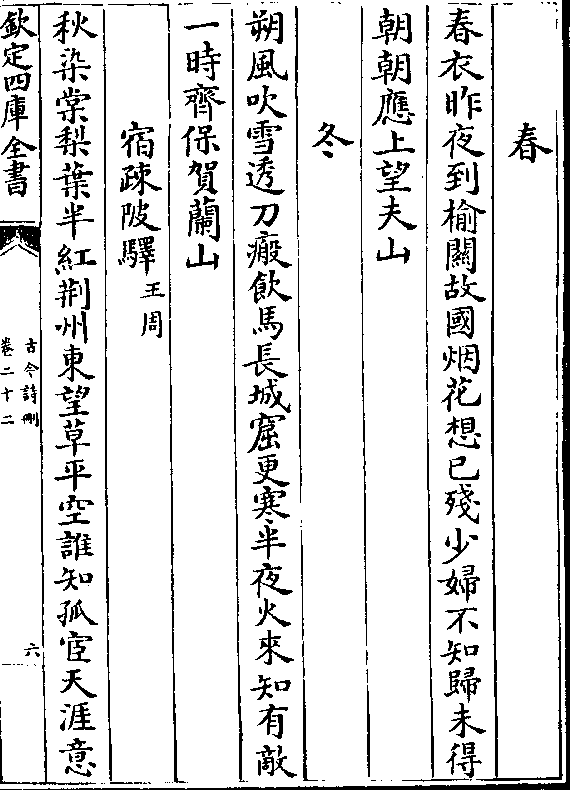 春
春衣昨夜到榆關故國烟花想已殘少婦不知歸未得
朝朝應上望夫山
冬
朔風吹雪透刀瘢飲馬長城窟更寒半夜火來知有敵
一時齊保賀蘭山
宿疎陂驛王周
秋染棠梨葉半紅荆州東望草平空誰知孤宦天涯意
欽定四庫全書
古今詩刪
卷二十二
六